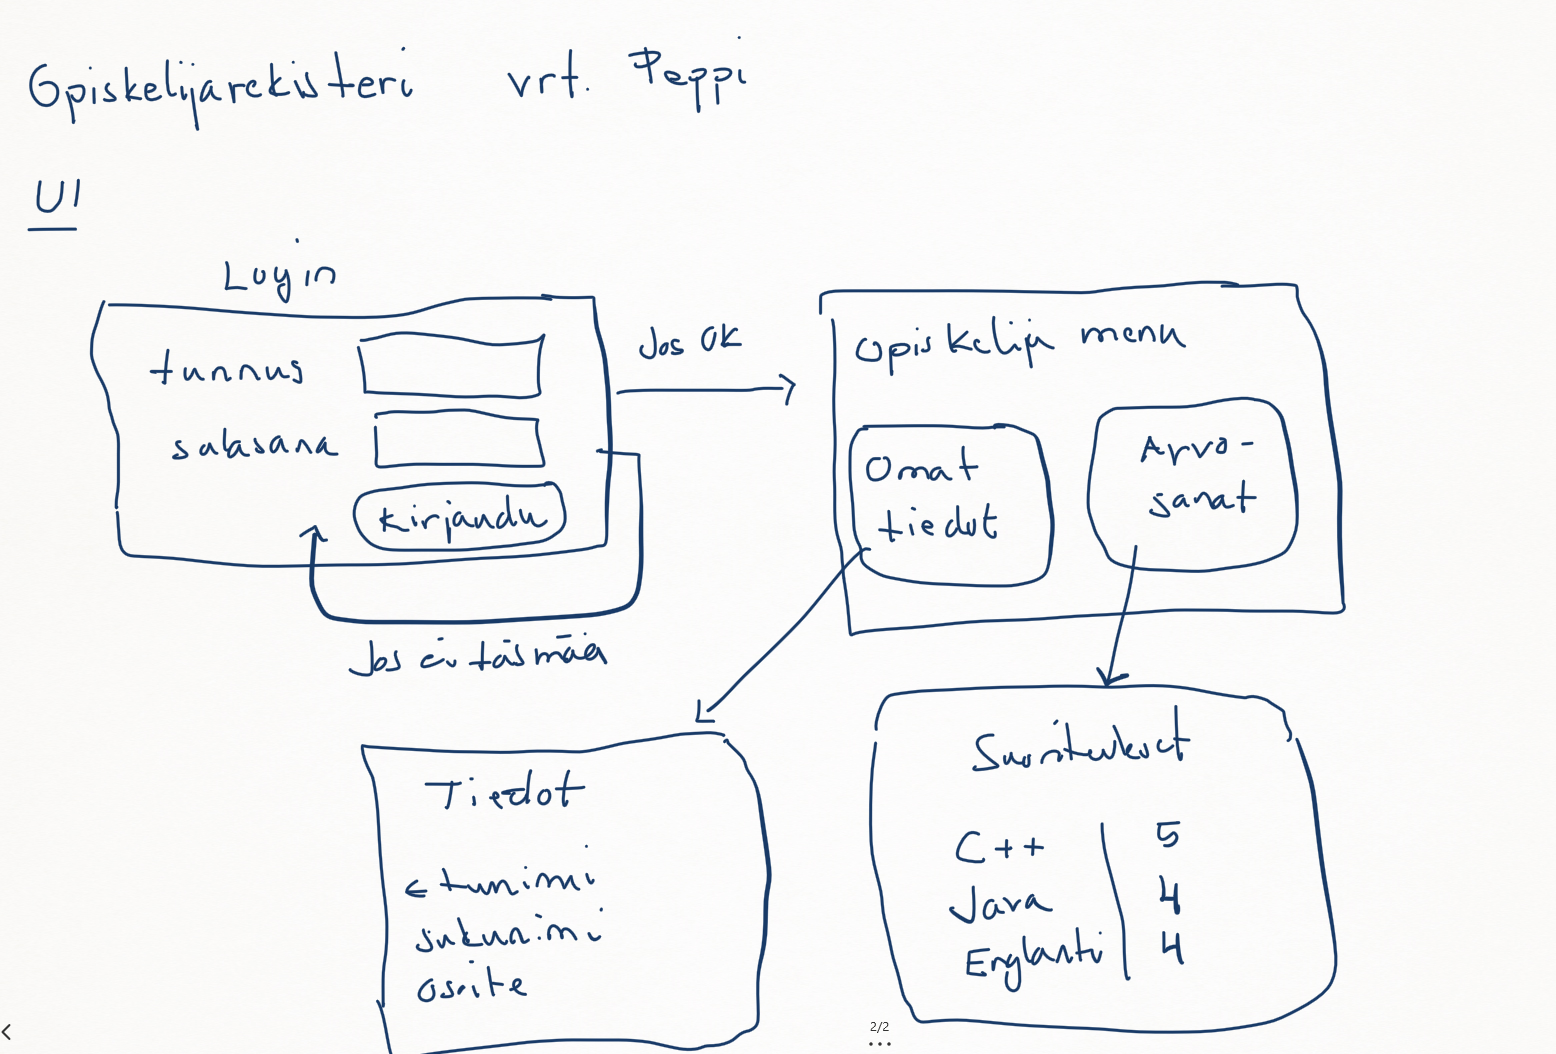 Opiskelijarekisteri vrt. Peppi
UI
Login
tunnus
salasana
Kirjaudu
Jos OK
Jos ei täsmää
Opiskelija menu
Omat
tiedot
Arvo-
sanat
Tiedot
etunimi
sukunimi
osoite
Suoritukset
C++ 5
Java 4
Englanti 4
2/2